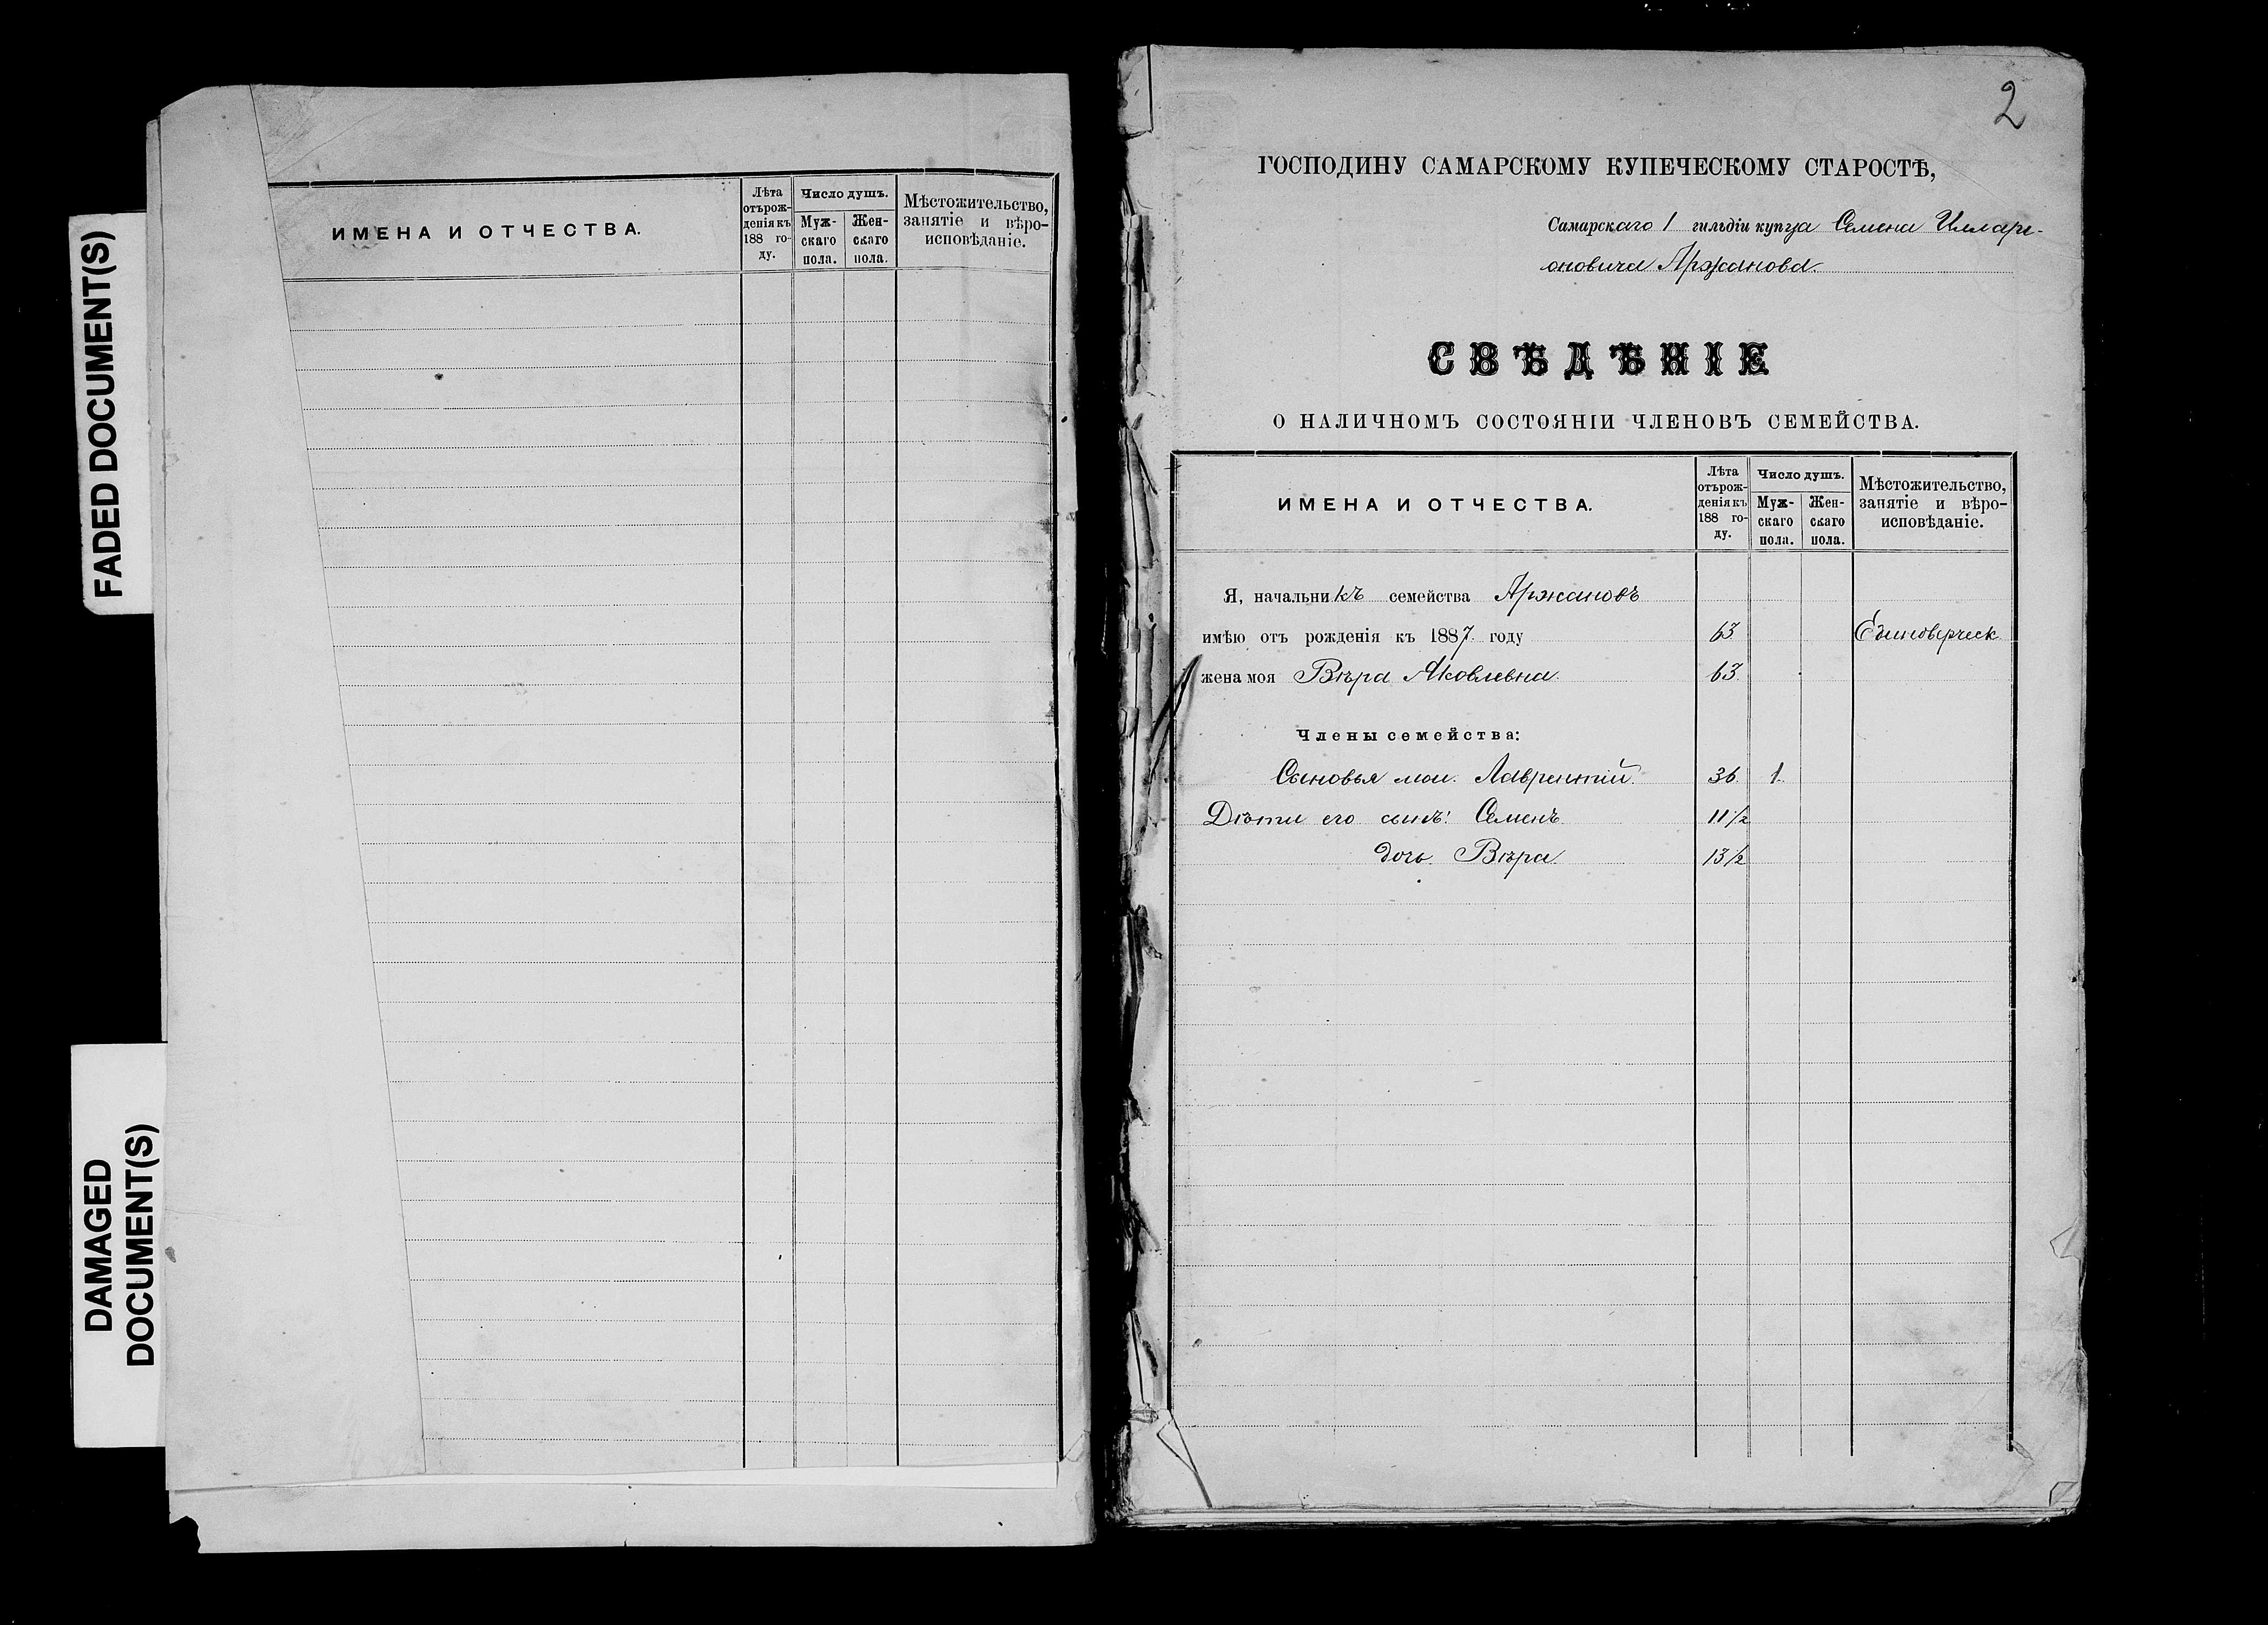 FADED DOCUMENT(S)
DAMAGED
DOCUMENT(S)
ИМЕНА И ОТЧЕСТВА.
Лѣта
отъ рож-
денія къ
188 го-
ду.
Число душъ.
Муж-
скаго
пола.
Жен-
скаго
пола.
Мѣстожительство,
занятіе и вѣро-
исповѣданіе.
2
ГОСПОДИНУ САМАРСКОМУ КУПЕЧЕСКОМУ СТАРОСТѢ,
Самарскаго 1 гильдіи купца Семена Иллари-
оновича Аржанова.
СВѢДѢНІЕ
О НАЛИЧНОМЪ СОСТОЯНІИ ЧЛЕНОВЪ СЕМЕЙСТВА.
ИМЕНА И ОТЧЕСТВА.
Лѣта
отъ рож-
денія къ
188 го-
ду.
Число душъ.
Муж-
скаго
пола.
Жен-
скаго
пола.
Мѣстожительство,
занятіе и вѣро-
исповѣданіе.
Я, начальникъ семейства Аржановъ
имѣю отъ рожденія къ 1887 году 63 Единоверческ
жена моя Вѣра Яковлевна 63
Члены семейства:
Сыновья мои. Лаврентій 36 1.
Дѣти его сынъ: Семенъ 11 1/2
дочь Вѣра 13 1/2